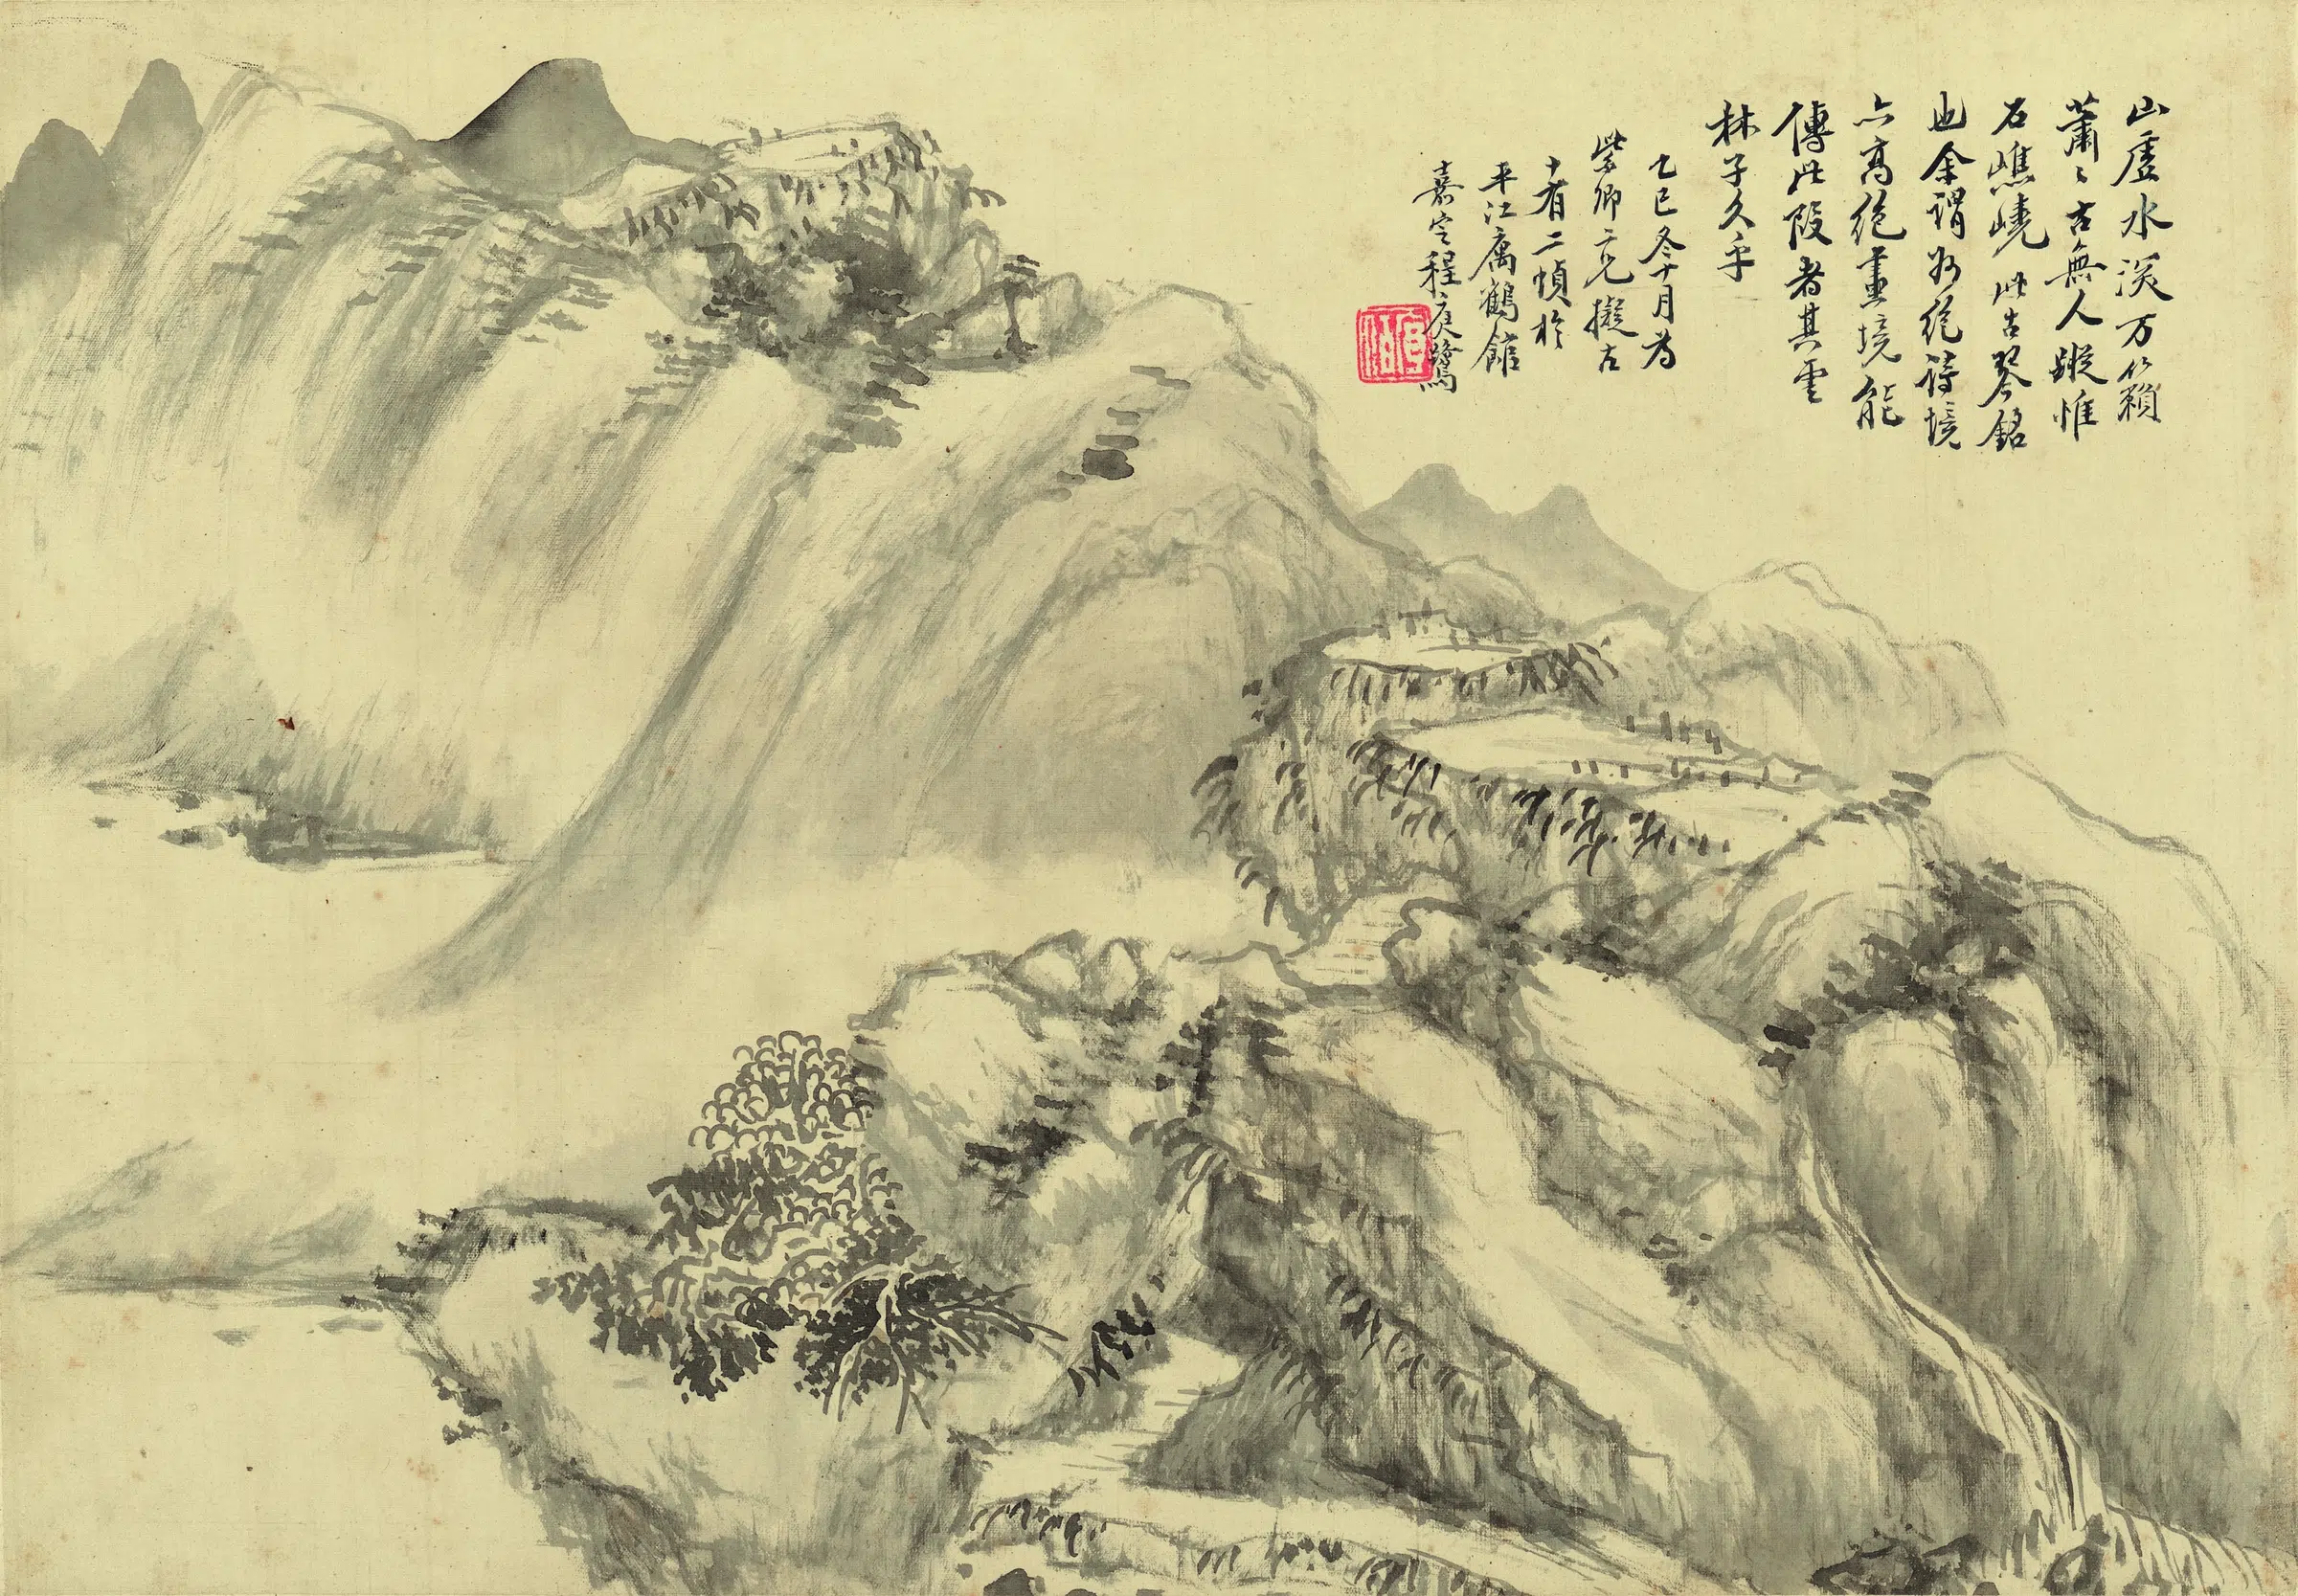 山虛水深万籟
蕭〻古無人蹤惟
石嶕嶢此古琴銘
也余謂始絕詩境
亦高絕畫境能
傳此段者其雲
林子久乎
乙巳冬十月為
紫卿二兄擬古
十有二幀於
平江寓鶴館
嘉定程庭鷺